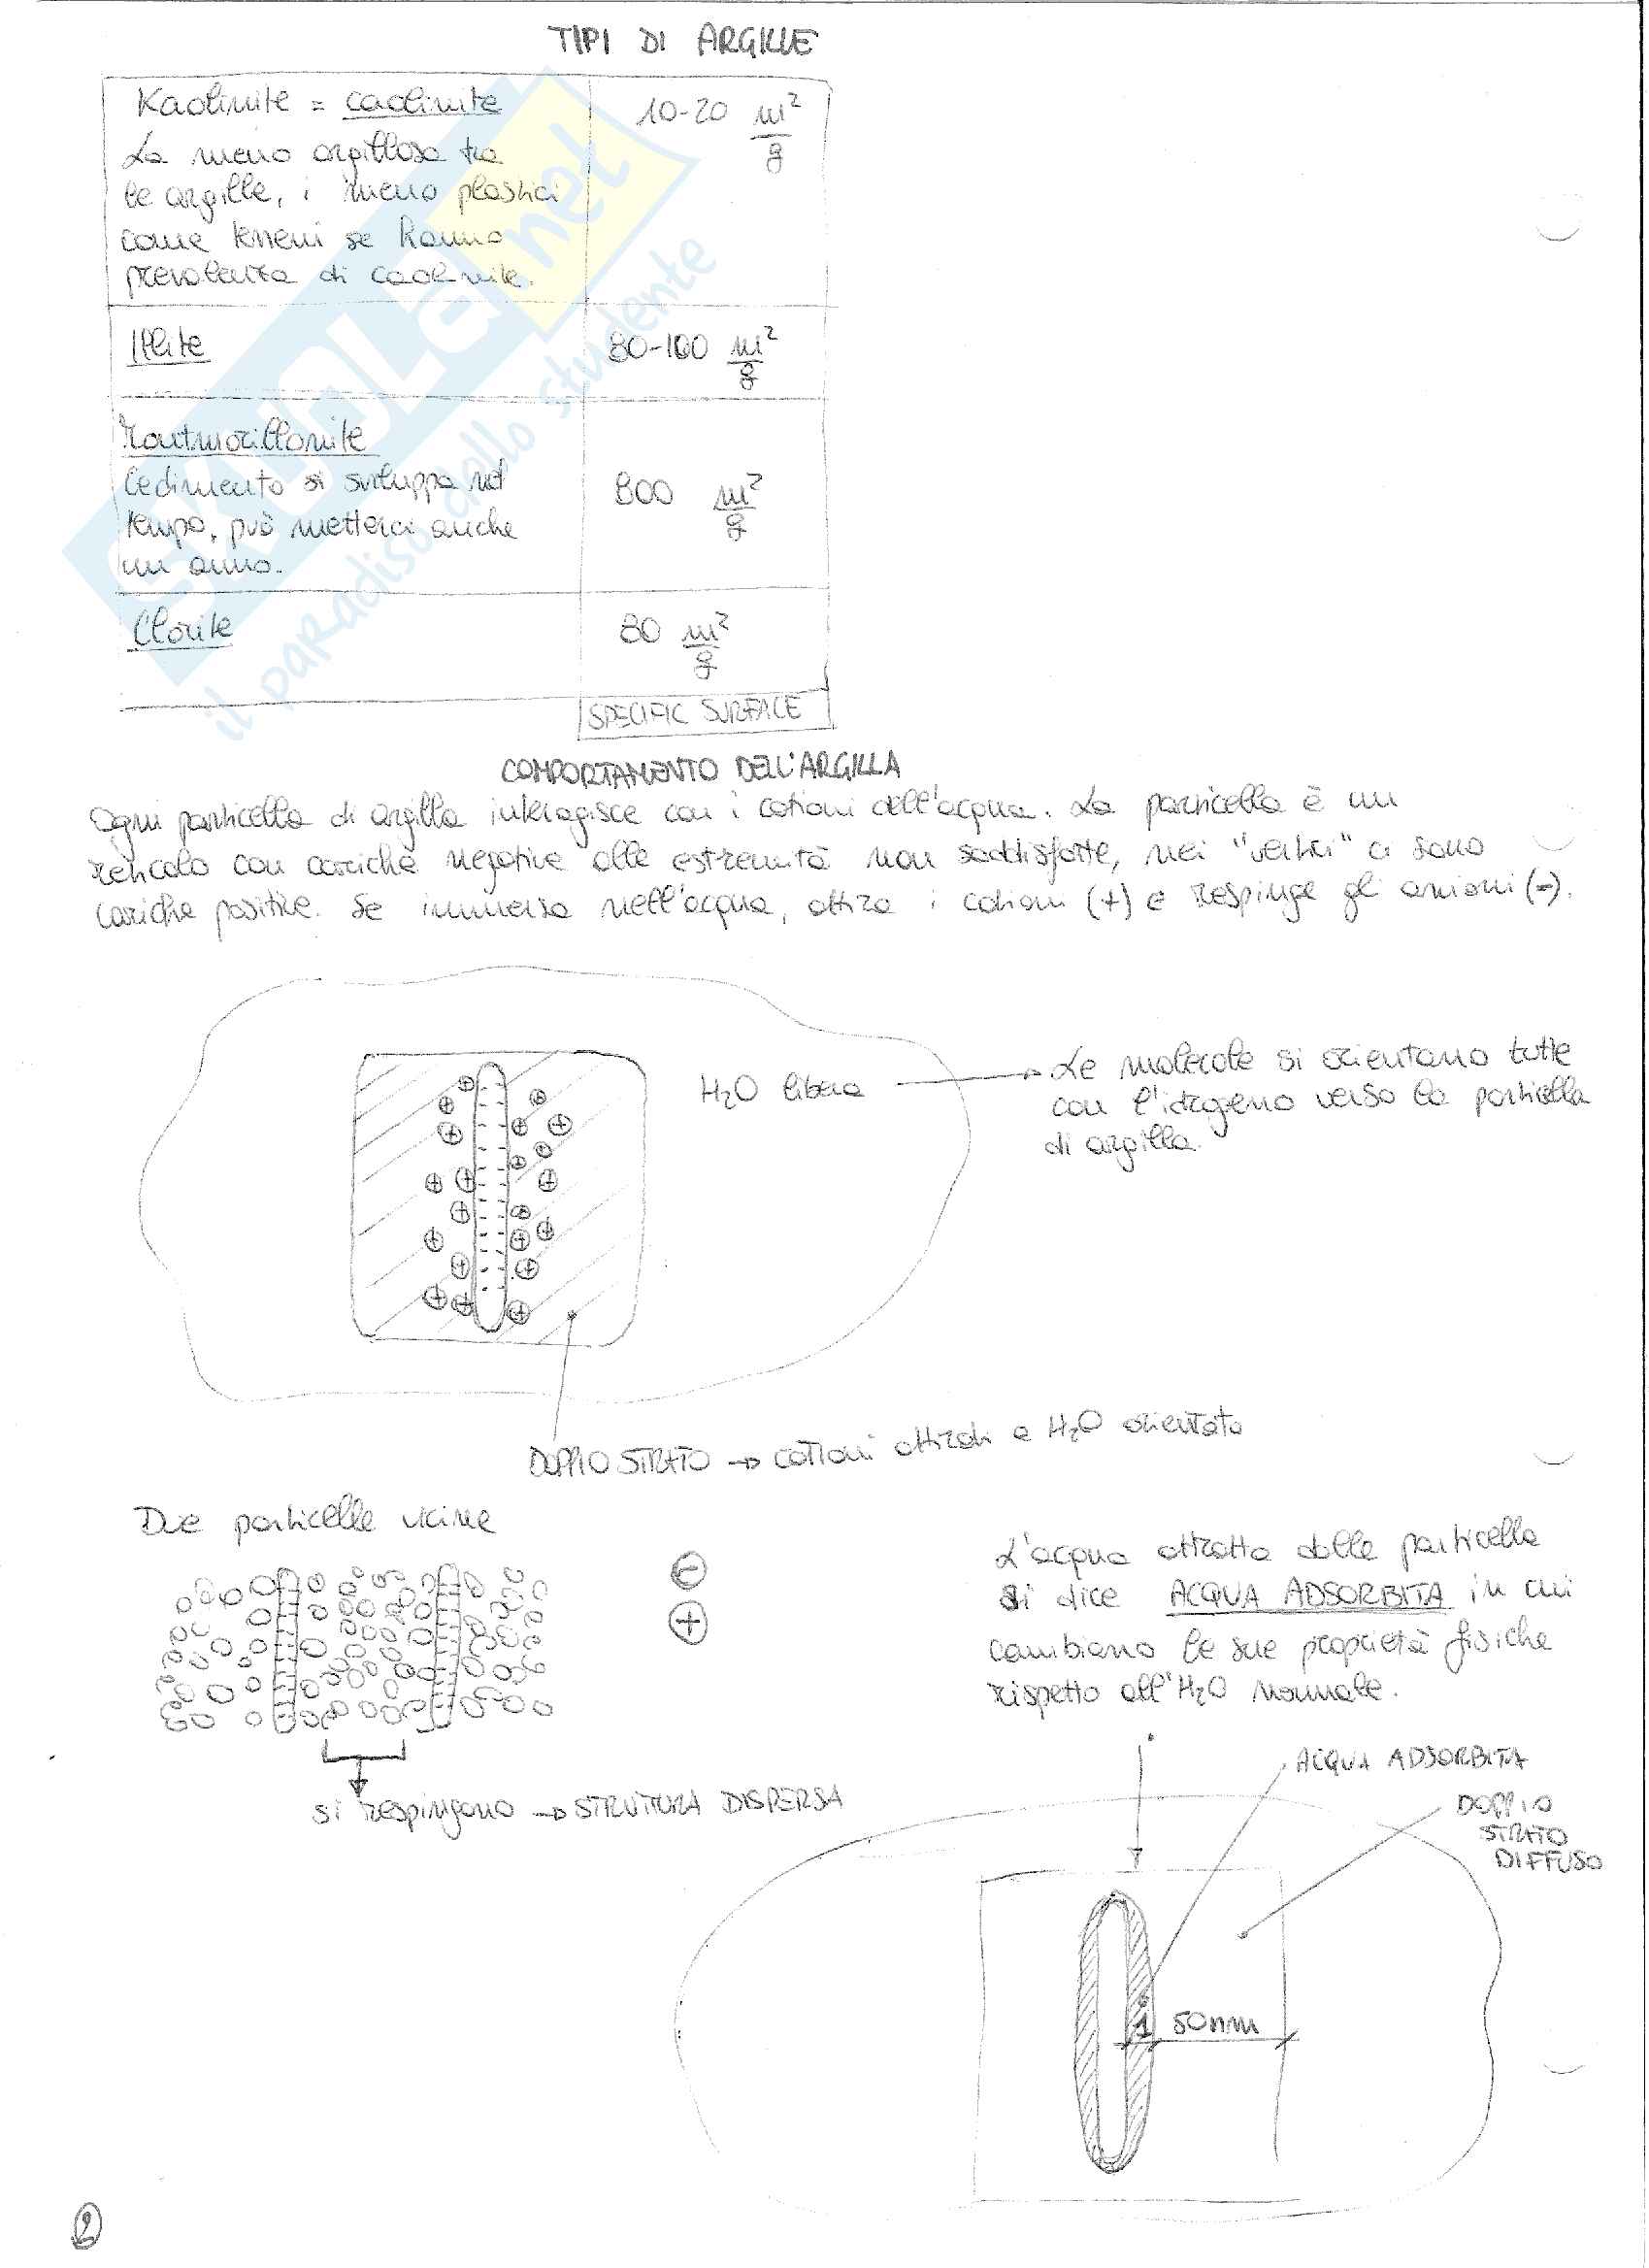 TIPI DI ARGILLE
Kaolinite = caolinite
10-20 m²/g
La meno argillosa tra
le argille, i meno plastici
come terreni se hanno
prevalenza di caolinite.
Illite
80-100 m²/g
Montmorillonite
Cedimento si sviluppa nel
tempo, può metterci anche
un anno.
800 m²/g
Clorite
80 m²/g
SPECIFIC SURFACE
SKUOLA.net
il paradiso dello studente
COMPORTAMENTO DELL'ARGILLA
Ogni particella di argilla interagisce con i cationi dell'acqua. La particella è un
reticolo con cariche negative alle estremità non soddisfatte, nei "vertici" ci sono
cariche positive. Se immersa nell'acqua, attira i cationi (+) e respinge gli anioni (-).
H₂O libera → Le molecole si orientano tutte
con l'idrogeno verso la particella
di argilla.
DOPPIO STRATO → cationi attirati e H₂O orientata
Due particelle vicine
⊖
⊕
si respingono → STRUTTURA DISPERSA
L'acqua attratta dalle particelle
si dice ACQUA ADSORBITA in cui
cambiano le sue proprietà fisiche
rispetto all'H₂O normale.
ACQUA ADSORBITA
DOPPIO
STRATO
DIFFUSO
1 50nm
2